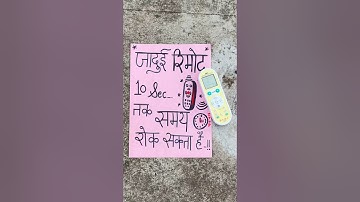 जादुई रिमोट
10 Sec..
तक समय
रोक सकता है..!!